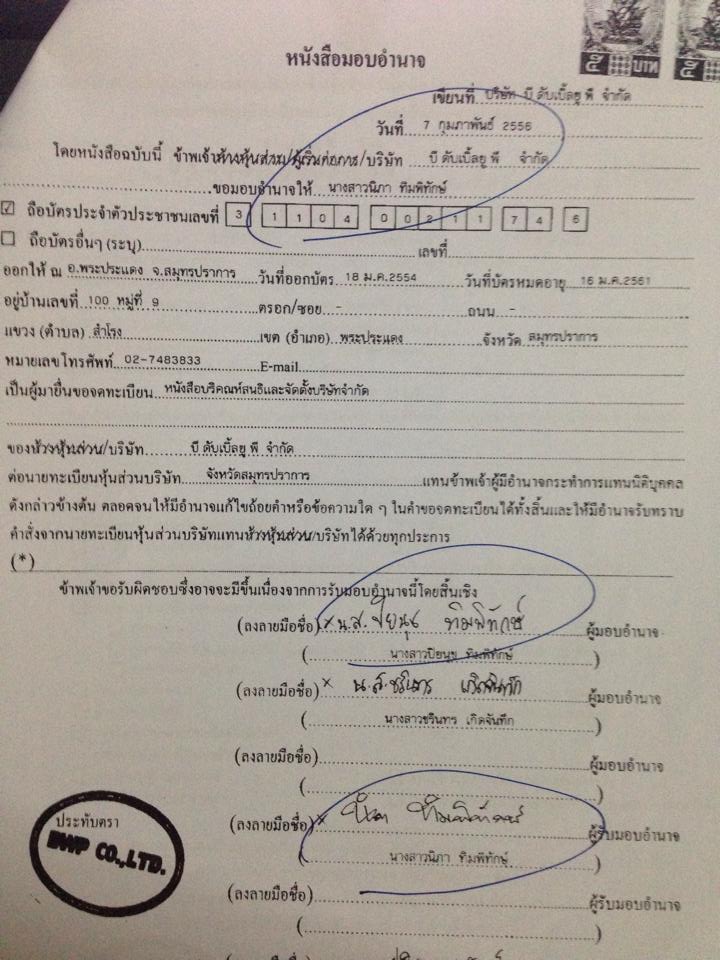 ๕ บาท ๕
หนังสือมอบอำนาจ
เขียนที่ บริษัท บี ดับเบิ้ลยู พี จำกัด
วันที่ 7 กุมภาพันธ์ 2556
โดยหนังสือฉบับนี้ ข้าพเจ้าห้างหุ้นส่วน/ผู้เริ่มก่อการ/บริษัท บี ดับเบิ้ลยู พี จำกัด
ขอมอบอำนาจให้ นางสาวนิภา ทิมพิทักษ์
☑ ถือบัตรประจำตัวประชาชนเลขที่ 3 1104 00211 74 6
☐ ถือบัตรอื่นๆ (ระบุ) เลขที่
ออกให้ ณ อ.พระประแดง จ.สมุทรปราการ วันที่ออกบัตร 18 ม.ค.2554 วันที่บัตรหมดอายุ 16 ม.ค.2561
อยู่บ้านเลขที่ 100 หมู่ที่ 9 ตรอก/ซอย - ถนน -
แขวง (ตำบล) สำโรง เขต (อำเภอ) พระประแดง จังหวัด สมุทรปราการ
หมายเลขโทรศัพท์ 02-7483833 E-mail
เป็นผู้มายื่นขอจดทะเบียน หนังสือบริคณห์สนธิและจัดตั้งบริษัทจำกัด
ของห้างหุ้นส่วน/บริษัท บี ดับเบิ้ลยู พี จำกัด
ต่อนายทะเบียนหุ้นส่วนบริษัท จังหวัดสมุทรปราการ แทนข้าพเจ้าผู้มีอำนาจกระทำการแทนนิติบุคคล
ดังกล่าวข้างต้น ตลอดจนให้มีอำนาจแก้ไขถ้อยคำหรือข้อความใด ๆ ในคำขอจดทะเบียนได้ทั้งสิ้นและให้มีอำนาจรับทราบ
คำสั่งจากนายทะเบียนหุ้นส่วนบริษัทแทนห้างหุ้นส่วน/บริษัทได้ด้วยทุกประการ
(*)
ข้าพเจ้าขอรับผิดชอบซึ่งอาจจะมีขึ้นเนื่องจากการรับมอบอำนาจนี้โดยสิ้นเชิง
(ลงลายมือชื่อ) × น.ส. ปิยนุช ทิมพิทักษ์ ผู้มอบอำนาจ
(นางสาวปิยนุช ทิมพิทักษ์)
(ลงลายมือชื่อ) × น.ส. ชรินทร เกิดจันทึก ผู้มอบอำนาจ
(นางสาวชรินทร เกิดจันทึก)
(ลงลายมือชื่อ) ผู้มอบอำนาจ
( )
ประทับตรา
BWP CO.,LTD.
(ลงลายมือชื่อ) × นิภา ทิมพิทักษ์ ผู้รับมอบอำนาจ
(นางสาวนิภา ทิมพิทักษ์)
(ลงลายมือชื่อ) ผู้รับมอบอำนาจ
( )